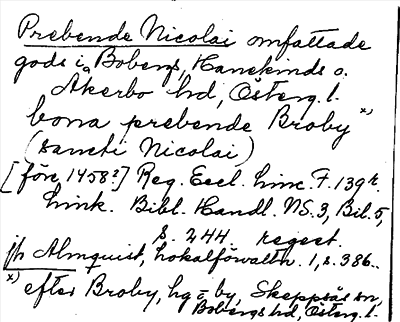 Prebende Nicolai omfattade
gods i Bobergs, Hanekinds o.
Åkerbo hd, Österg. l.
bona prebende Broby *)
(sancti Nicolai)
[före 1458?] Reg. Eccl. Linc. F. 139r.
Link. Bibl. Handl. NS. 3, Bil. 5,
s. 244 regest.
jfr Almquist, Lokalförvaltn. 1, s. 386..
*) efter Broby, hg = by, Skeppsås sn,
Bobergs hd, Österg. l.